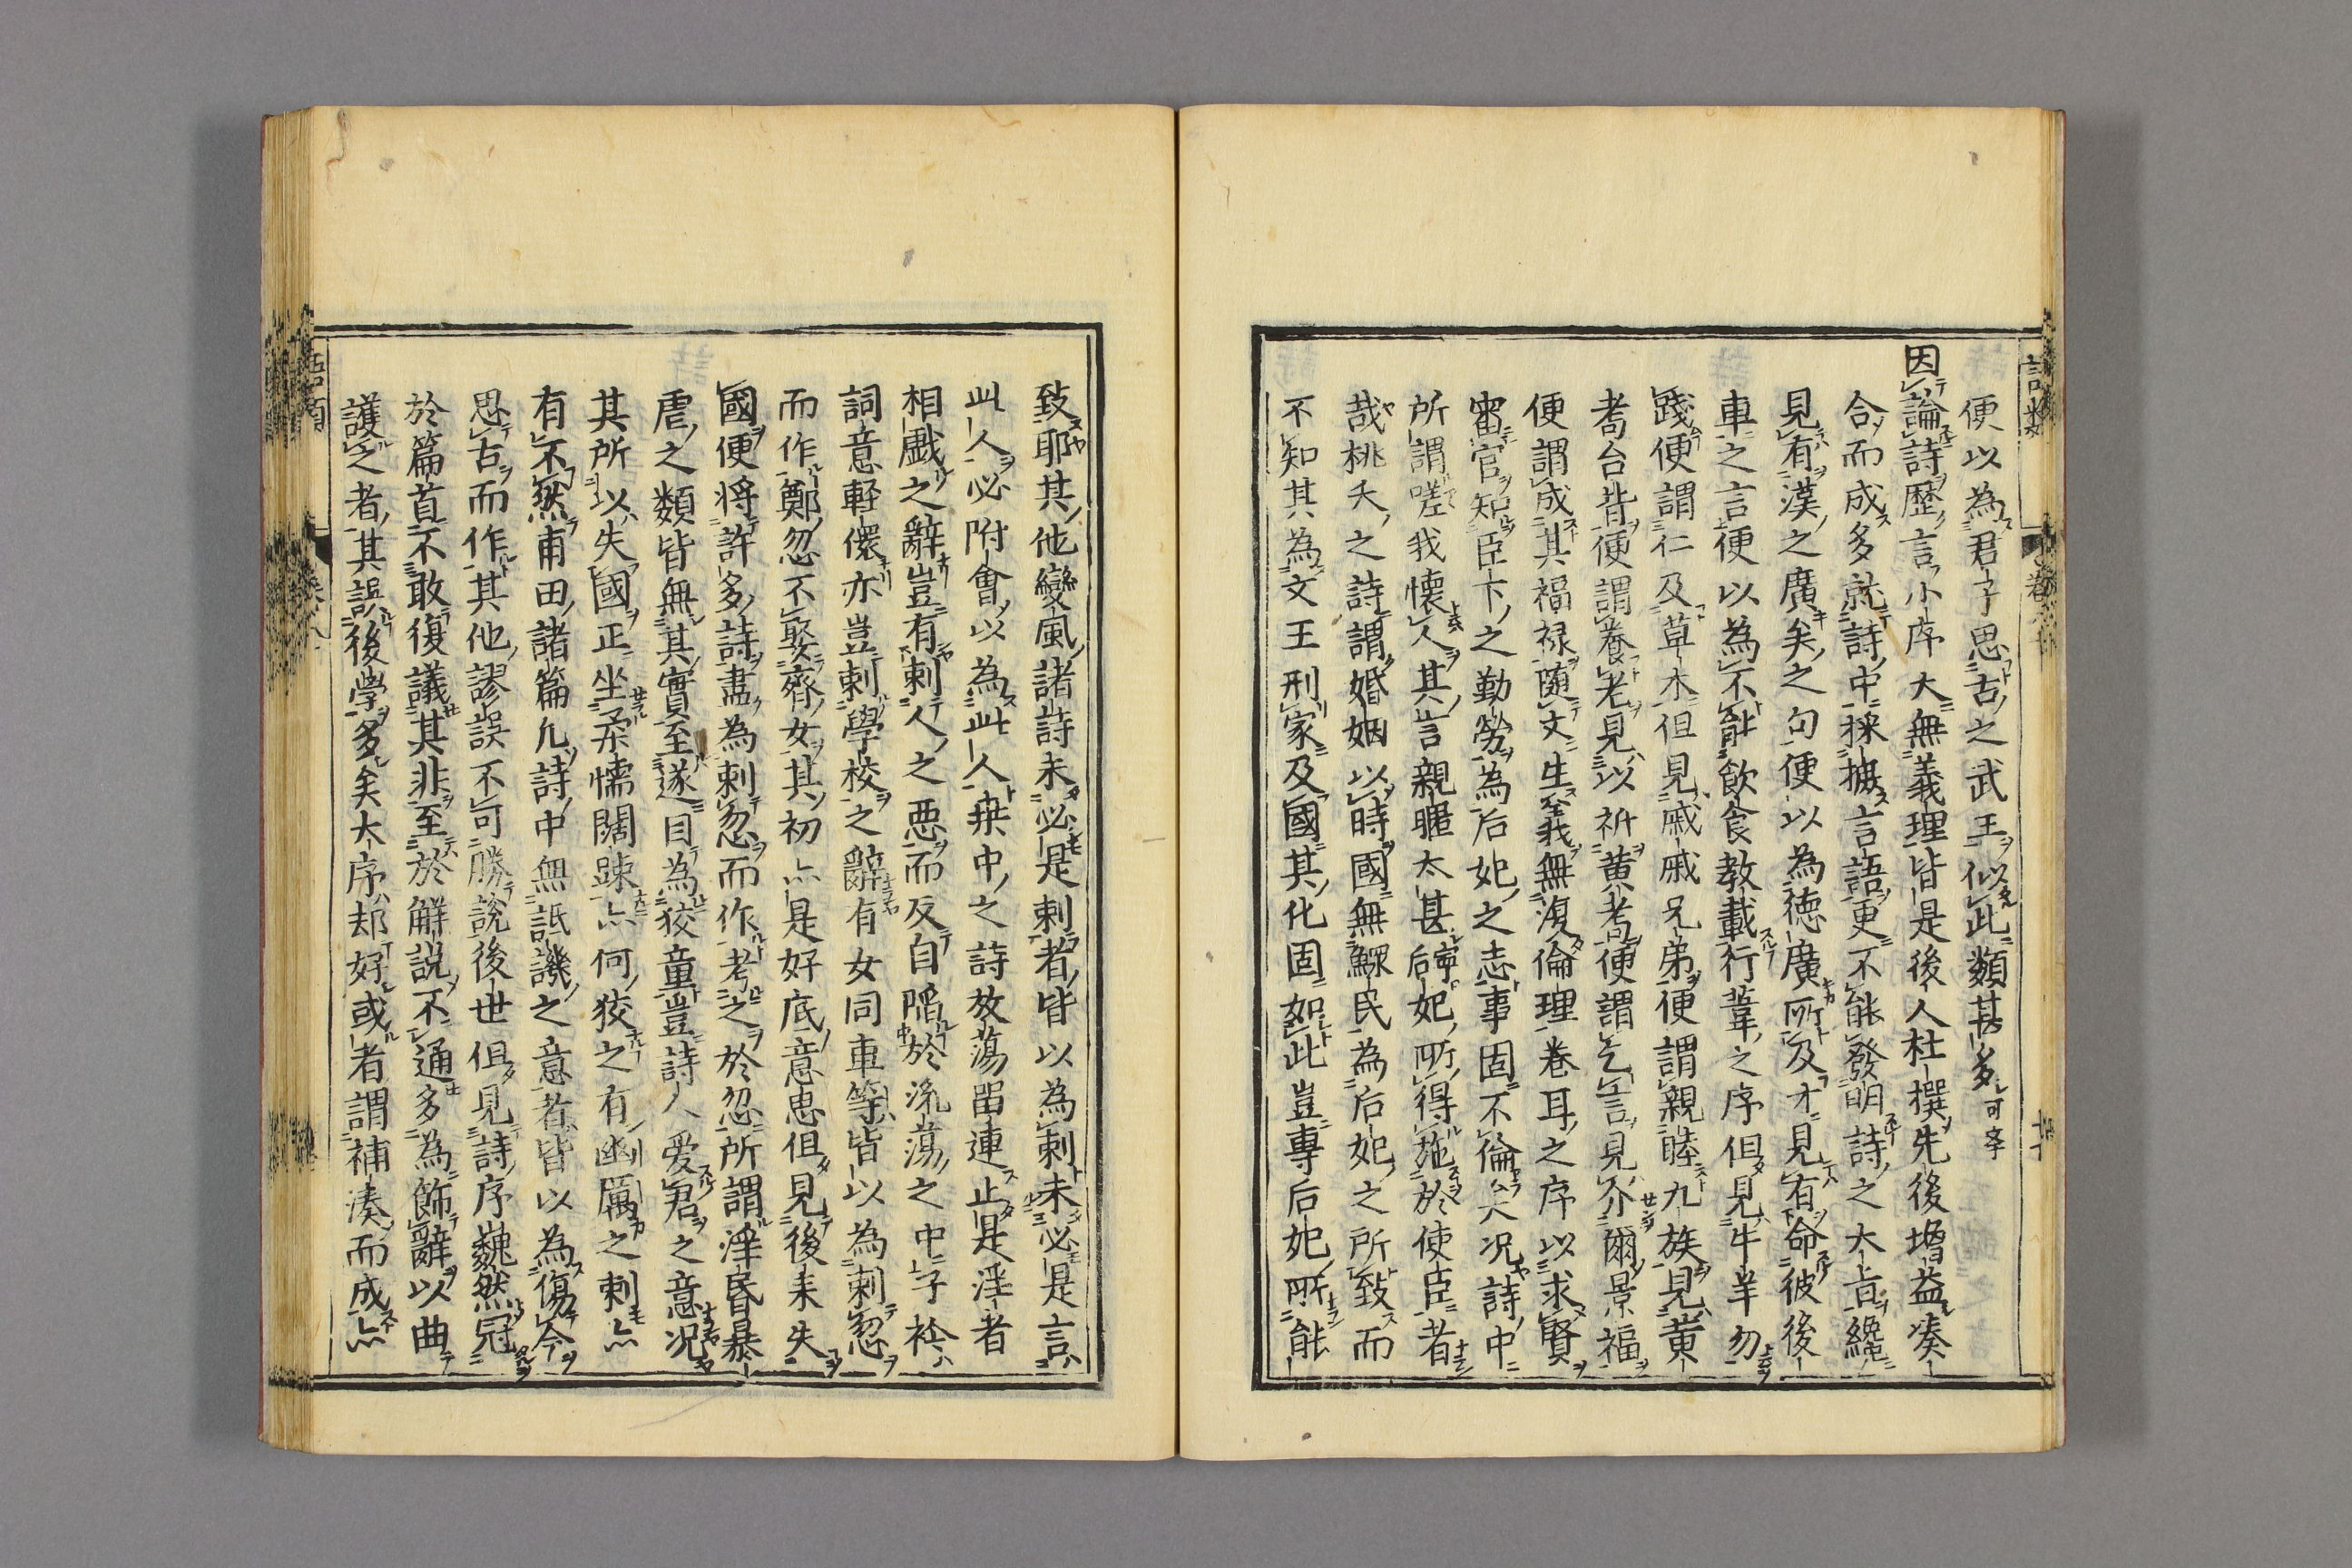 便以為君子思古之武王似此類甚多可学
因論詩歴言小序大無義理皆是後人杜撰先後増益湊
合而成多就詩中採摭言語更不能發明詩之大旨纔
見有漢之廣矣之句便以為徳廣所及才見有命彼後
車之言便以為不能飲食教載行葦之序但見牛羊勿
踐便謂仁及草木但見戚戚兄弟便謂親睦九族見黄
耉台背便謂養老見以祈黄耉便謂乞言見介爾景福
便謂成其福禄隨文生義無復倫理卷耳之序以求賢
審官知臣下之勤勞為后妃之志事固不倫矣况詩中
所謂嗟我懷人其言親暱太甚寧后妃所得施於使臣者
哉桃夭之詩謂婚姻以時國無鰥民為后妃之所致而
不知其為文王刑家及國其化固如此豈專后妃所能
致耶其他變風諸詩未必是刺者皆以為刺未必是言
此人必附會以為此人桒中之詩放蕩畱連止是淫者
相戲之辭豈有刺人之悪而反自陷於流蕩之中子衿
詞意軽儇亦豈刺學校之辭有女同車等皆以為刺忽
而作鄭忽不娶齊女其初亦是好底意思但見後来失
國便将許多詩盡為刺忽而作考之於忽所謂淫昏暴
虐之類皆無其實至遂目為狡童豈詩人爱君之意况
其所以失國正坐柔懦闊踈亦何狡之有幽厲之刺亦
有不然甫田諸篇凡詩中無詆譏之意者皆以為傷今
思古而作其他謬誤不可勝説後世但見詩序巍然冠
於篇首不敢復議其非至於解説不通多為飾辭以曲
護之者其誤後学多矣大序却好或者謂補湊而成亦